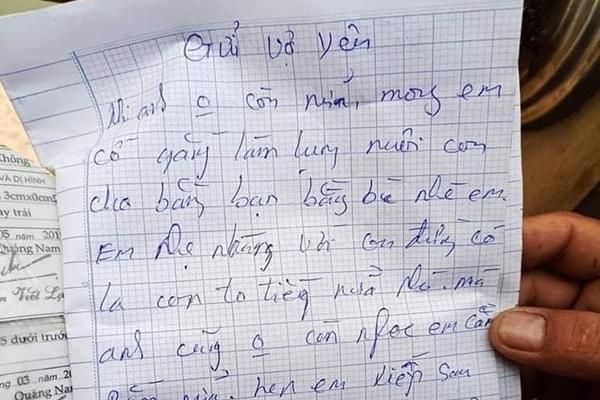 Gửi vợ yên
Khi anh o còn nữa, mong em
cố gắng làm lụng nuôi con
cho bằng bạn bằng bè nhé em.
Em nhẹ nhàng với con đừng có
la con to tiếng nữa nhé. mà
anh cũng o còn nhọc em cằn
nữa. hẹn em kiếp sau
Không
VÀ DỊ HÌNH
3cmx0cm5
ay trái
05 năm 201
Quảng Nam
Viết
5 dưới trước
ng 03 năm 2
Quảng Na